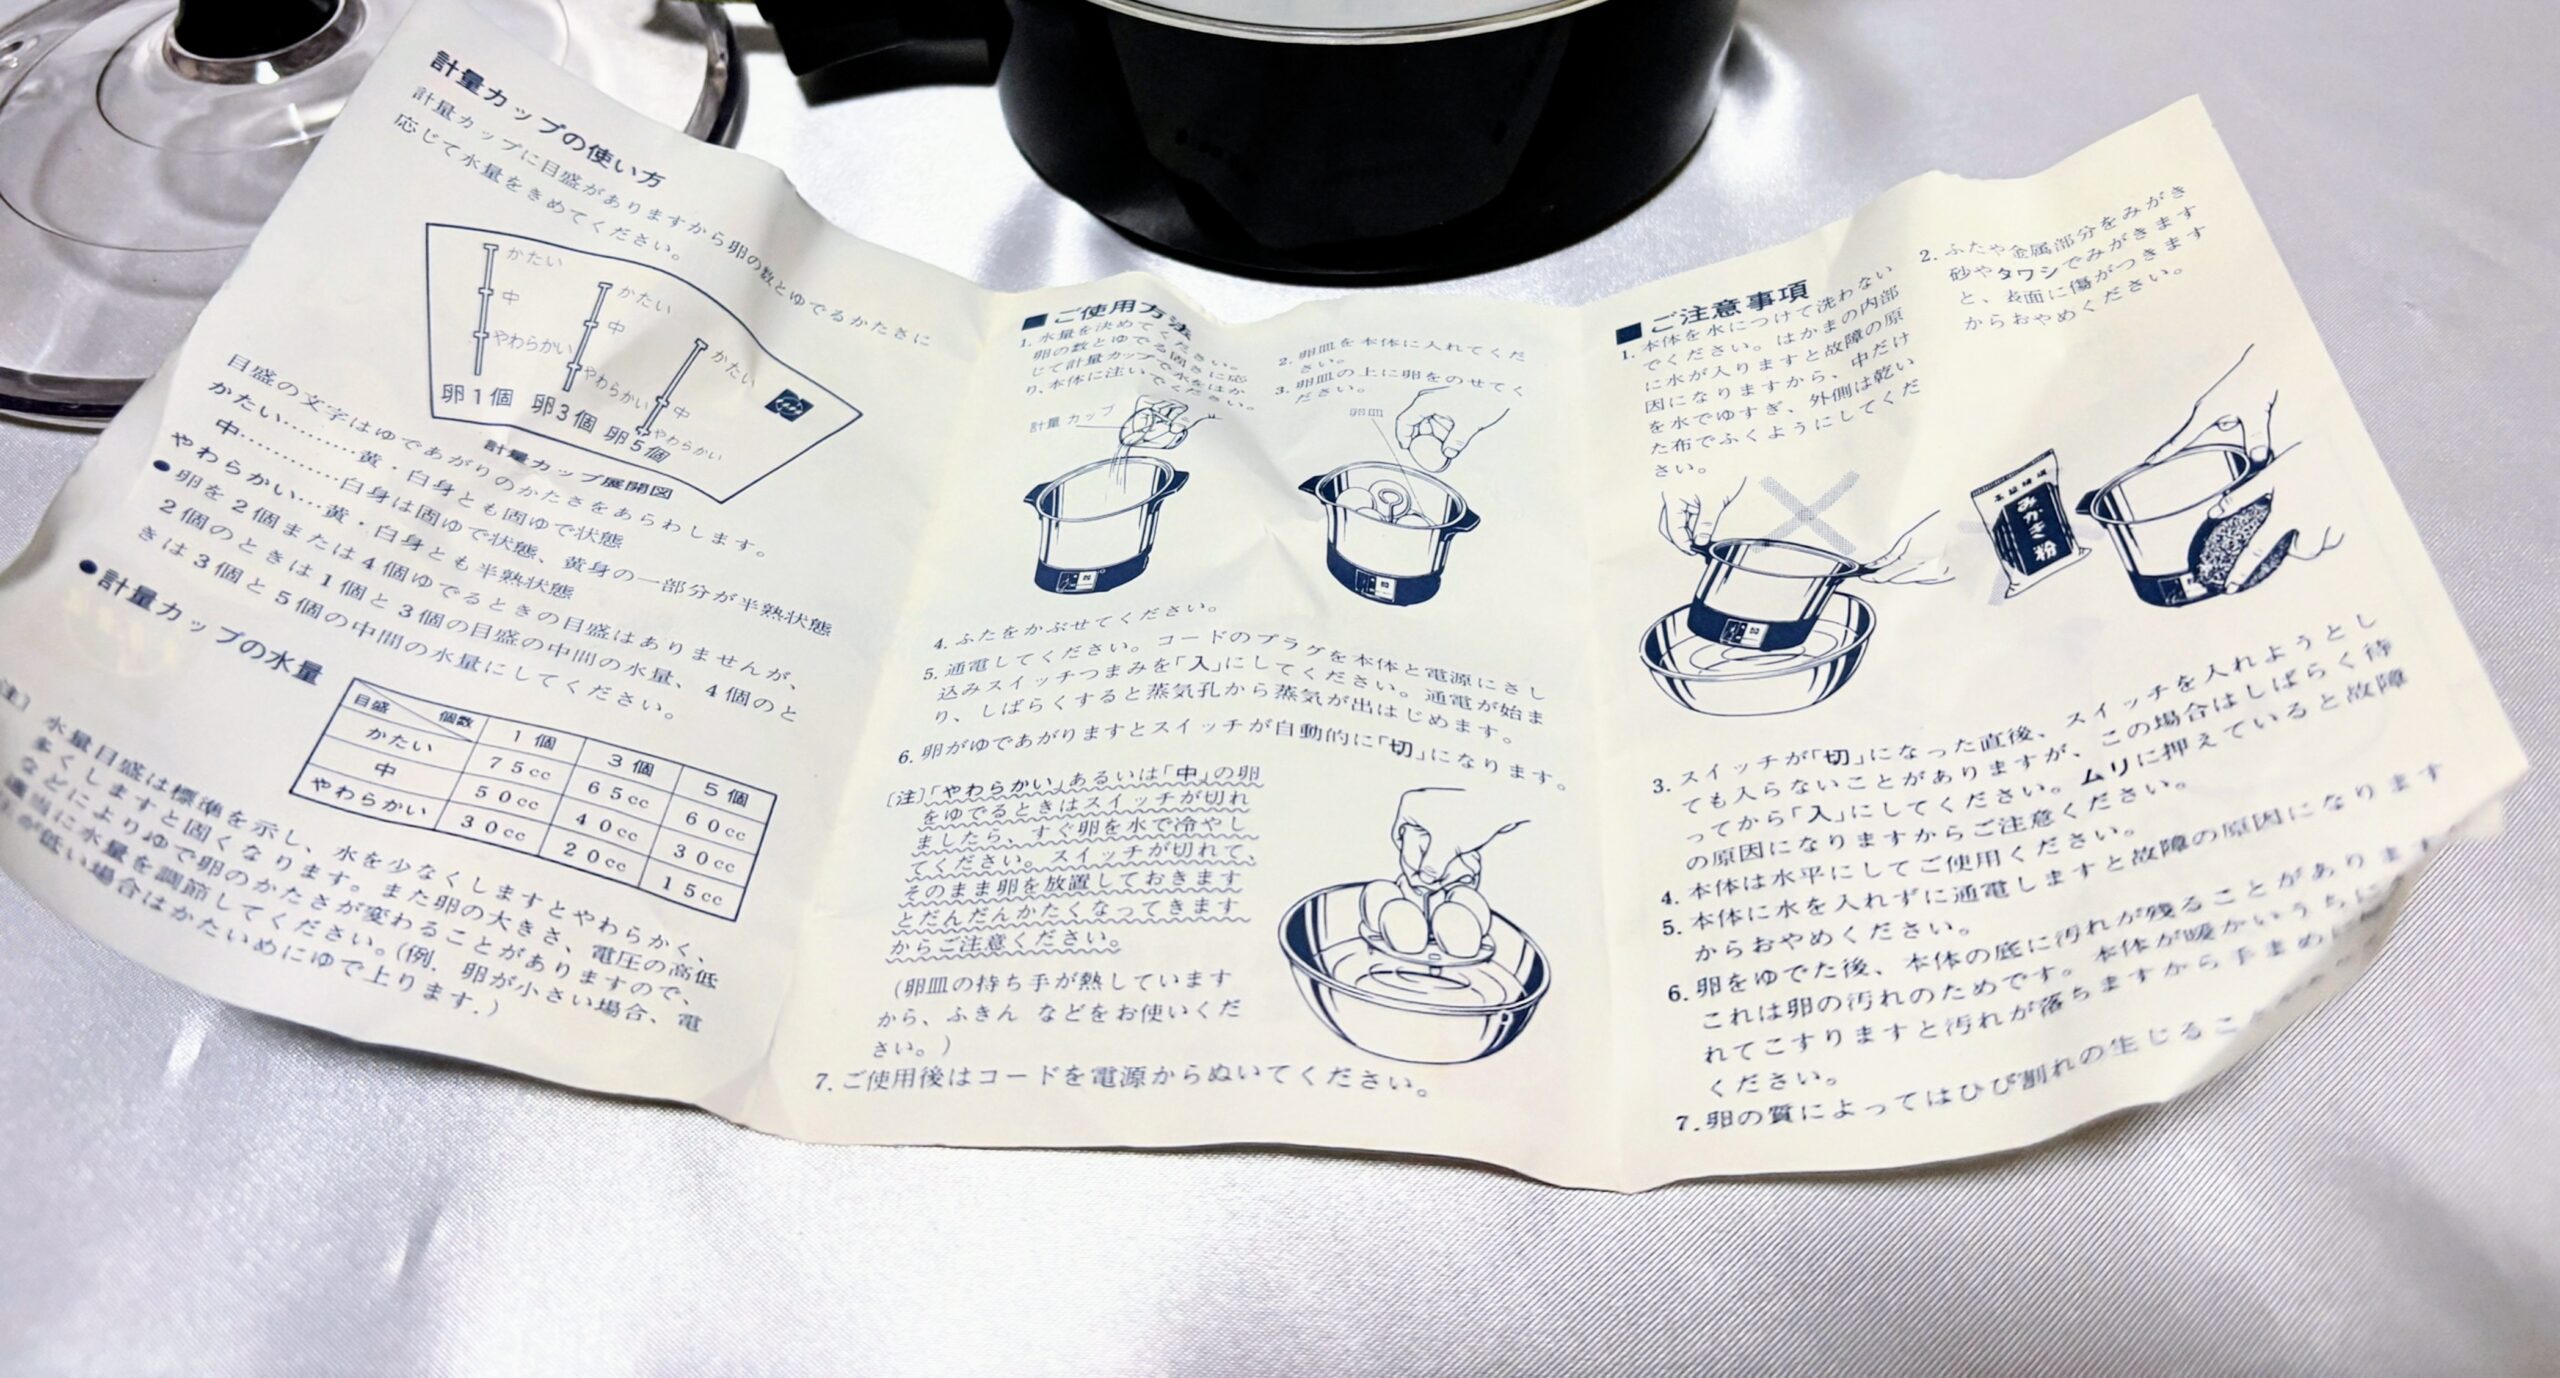 計量カップの使い方
計量カップに目盛がありますから卵の数とゆでるかたさに
応じて水量をきめてください。
かたい
中
やわらかい
卵1個
かたい
中
やわらかい
卵3個
かたい
中
やわらかい
卵5個
計量カップ展開図
目盛の文字はゆであがりのかたさをあらわします。
かたい…………黄・白身とも固ゆで状態
中……………白身は固ゆで状態、黄身の一部分が半熟状態
やわらかい…黄・白身とも半熟状態
●卵を2個または4個ゆでるときの目盛はありませんが、
2個のときは1個と3個の目盛の中間の水量、4個のと
きは3個と5個の中間の水量にしてください。
●計量カップの水量
目盛 個数 1個 3個 5個
かたい 75cc 65cc 60cc
中 50cc 40cc 30cc
やわらかい 30cc 20cc 15cc
注〕水量目盛は標準を示し、水を少なくしますとやわらかく、
多くしますと固くなります。また卵の大きさ、電圧の高低
などによりゆで卵のかたさが変わることがありますので、
適当に水量を調節してください。(例．卵が小さい場合、電
が低い場合はかたいめにゆで上ります．)
■ご使用方法
1. 水量を決めてください。
卵の数とゆでる固さに応
じて計量カップで水をはか
り、本体に注いでください。
計量カップ
2. 卵皿を本体に入れてくだ
さい。
3. 卵皿の上に卵をのせてく
ださい。
卵皿
4. ふたをかぶせてください。
5. 通電してください。コードのプラグを本体と電源にさし
込みスイッチつまみを「入」にしてください。通電が始ま
り、しばらくすると蒸気孔から蒸気が出はじめます。
6. 卵がゆであがりますとスイッチが自動的に「切」になります。
〔注〕「やわらかい」あるいは「中」の卵
をゆでるときはスイッチが切れ
ましたら、すぐ卵を水で冷やし
てください。スイッチが切れて、
そのまま卵を放置しておきます
とだんだんかたくなってきます
からご注意ください。
(卵皿の持ち手が熱しています
から、ふきん などをお使いくだ
さい。)
7. ご使用後はコードを電源からぬいてください。
■ご注意事項
1. 本体を水につけて洗わない
でください。はかまの内部
に水が入りますと故障の原
因になりますから、中だけ
を水でゆすぎ、外側は乾い
た布でふくようにしてくだ
さい。
2. ふたや金属部分をみがき
砂やタワシでみがきます
と、表面に傷がつきます
からおやめください。
みがき粉
3. スイッチが「切」になった直後、スイッチを入れようとし
ても入らないことがありますが、この場合はしばらく待
ってから「入」にしてください。ムリに抑えていると故障
の原因になりますからご注意ください。
4. 本体は水平にしてご使用ください。
5. 本体に水を入れずに通電しますと故障の原因になります
からおやめください。
6. 卵をゆでた後、本体の底に汚れが残ることがあります
これは卵の汚れのためです。本体が暖かいうちに
れてこすりますと汚れが落ちますから手まめに
ください。
7. 卵の質によってはひび割れの生じるこ